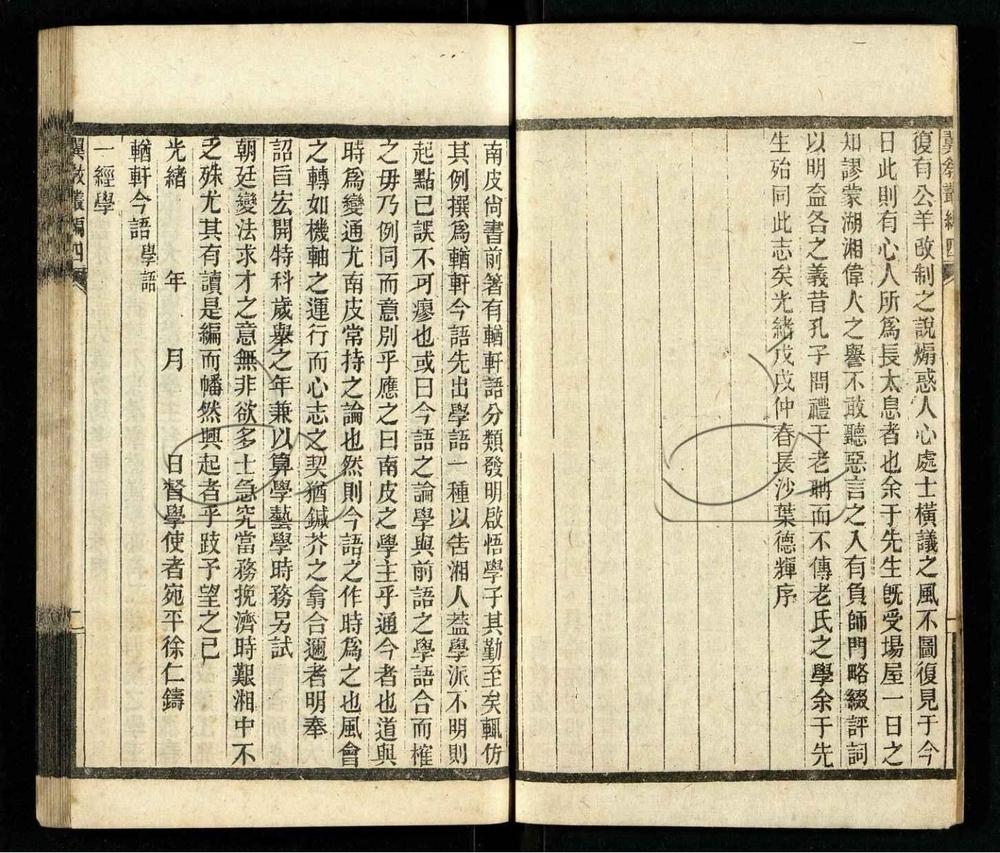 翼教叢編四
復有公羊改制之說煽惑人心處士橫議之風不圖復見于今
日此則有心人所爲長太息者也余于先生旣受場屋一日之
知謬蒙湖湘偉人之譽不敢聽惡言之入有負師門略綴評詞
以明盍各之義昔孔子問禮于老聃而不傳老氏之學余于先
生殆同此志矣光緒戊戌仲春長沙葉德輝序
南皮尙書前箸有輶軒語分類發明啟悟學子其勤至矣輒仿
其例撰爲輶軒今語先出學語一種以告湘人葢學派不明則
起點已誤不可瘳也或曰今語之論學與前語之學語合而榷
之毋乃例同而意別乎應之曰南皮之學主乎通今者也道與
時爲變通尤南皮常持之論也然則今語之作時爲之也風會
之轉如機軸之運行而心志之契猶鍼芥之翕合邇者明奉
詔旨宏開特科歲舉之年兼以算學藝學時務另試
朝廷變法求才之意無非欲多士急究當務挽濟時艱湘中不
之殊尤其有讀是編而幡然興起者乎跂予望之已
光緒　年　月　日督學使者宛平徐仁鑄
輶軒今語 學語
一經學
翼教叢編四
二